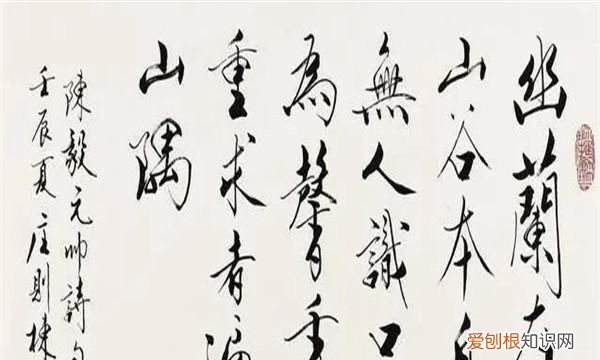 幽蘭在
山谷本自
無人識只
為馨香
重求者遍
山隅
陳毅元帥詩句
壬辰夏庄則棟
爱刨根知识网